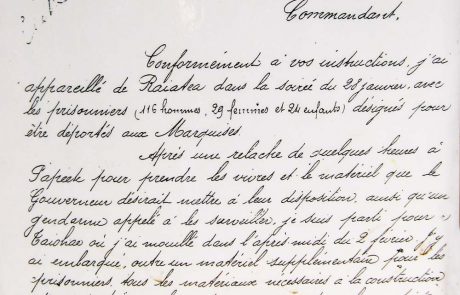 Commandant,
Conformément à vos instructions, j'ai
appareillé de Raiatea dans la soirée du 28 janvier, avec
les prisonniers (116 hommes, 29 femmes et 24 enfants) désignés pour
être déportés aux Marquises.
Après une relache de quelques heures à
Papeete pour prendre les vivres et le matériel que le
Gouverneur désirait mettre à leur disposition, ainsi qu'un
gendarme appelé à les surveiller, je suis parti pour
Taiohae où j'ai mouillé dans l'après midi du 2 février. J'y
ai embarqué, outre un matériel supplémentaire pour les
prisonniers, tous les matériaux nécessaires à la construction